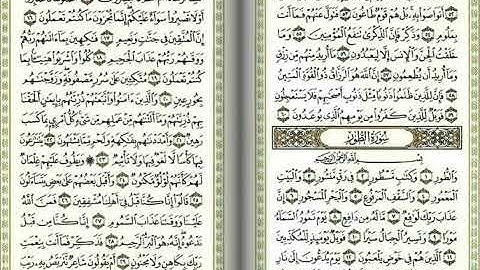 أَتَوَاصَوْا بِهِ بَلْ هُمْ قَوْمٌ طَاغُونَ فَتَوَلَّ عَنْهُمْ فَمَا أَنْتَ
بِمَلُومٍ وَذَكِّرْ فَإِنَّ الذِّكْرَى تَنْفَعُ الْمُؤْمِنِينَ وَمَا
خَلَقْتُ الْجِنَّ وَالْإِنْسَ إِلَّا لِيَعْبُدُونِ مَا أُرِيدُ مِنْهُمْ مِنْ رِزْقٍ
وَمَا أُرِيدُ أَنْ يُطْعِمُونِ إِنَّ اللَّهَ هُوَ الرَّزَّاقُ ذُو الْقُوَّةِ الْمَتِينُ
فَإِنَّ لِلَّذِينَ ظَلَمُوا ذَنُوبًا مِثْلَ ذَنُوبِ أَصْحَابِهِمْ فَلَا يَسْتَعْجِلُونِ
فَوَيْلٌ لِلَّذِينَ كَفَرُوا مِنْ يَوْمِهِمُ الَّذِي يُوعَدُونَ
سُورَةُ الطُّورِ
بِسْمِ اللَّهِ الرَّحْمَنِ الرَّحِيمِ
وَالطُّورِ وَكِتَابٍ مَسْطُورٍ فِي رَقٍّ مَنْشُورٍ وَالْبَيْتِ
الْمَعْمُورِ وَالسَّقْفِ الْمَرْفُوعِ وَالْبَحْرِ الْمَسْجُورِ إِنَّ
عَذَابَ رَبِّكَ لَوَاقِعٌ مَا لَهُ مِنْ دَافِعٍ يَوْمَ تَمُورُ السَّمَاءُ
مَوْرًا وَتَسِيرُ الْجِبَالُ سَيْرًا فَوَيْلٌ يَوْمَئِذٍ لِلْمُكَذِّبِينَ
الَّذِينَ هُمْ فِي خَوْضٍ يَلْعَبُونَ
أَوْ لَا تَصْبِرُوا سَوَاءٌ عَلَيْكُمْ إِنَّمَا تُجْزَوْنَ مَا كُنْتُمْ تَعْمَلُونَ
إِنَّ الْمُتَّقِينَ فِي جَنَّاتٍ وَنَعِيمٍ فَاكِهِينَ بِمَا آتَاهُمْ رَبُّهُمْ
وَوَقَاهُمْ رَبُّهُمْ عَذَابَ الْجَحِيمِ كُلُوا وَاشْرَبُوا هَنِيئًا بِمَا
كُنْتُمْ تَعْمَلُونَ مُتَّكِئِينَ عَلَى سُرُرٍ مَصْفُوفَةٍ وَزَوَّجْنَاهُمْ
بِحُورٍ عِينٍ وَالَّذِينَ آمَنُوا وَاتَّبَعَتْهُمْ ذُرِّيَّتُهُمْ بِإِيمَانٍ أَلْحَقْنَا
بِهِمْ ذُرِّيَّتَهُمْ وَمَا أَلَتْنَاهُمْ مِنْ عَمَلِهِمْ مِنْ شَيْءٍ كُلُّ امْرِئٍ بِمَا كَسَبَ
رَهِينٌ وَأَمْدَدْنَاهُمْ بِفَاكِهَةٍ وَلَحْمٍ مِمَّا يَشْتَهُونَ يَتَنَازَعُونَ
فِيهَا كَأْسًا لَا لَغْوٌ فِيهَا وَلَا تَأْثِيمٌ وَيَطُوفُ عَلَيْهِمْ غِلْمَانٌ
لَهُمْ كَأَنَّهُمْ لُؤْلُؤٌ مَكْنُونٌ وَأَقْبَلَ بَعْضُهُمْ عَلَى بَعْضٍ يَتَسَاءَلُونَ
قَالُوا إِنَّا كُنَّا قَبْلُ فِي أَهْلِنَا مُشْفِقِينَ فَمَنَّ اللَّهُ
عَلَيْنَا وَوَقَانَا عَذَابَ السَّمُومِ إِنَّا كُنَّا مِنْ قَبْلُ
نَدْعُوهُ إِنَّهُ هُوَ الْبَرُّ الرَّحِيمُ فَذَكِّرْ فَمَا أَنْتَ بِنِعْمَتِ
رَبِّكَ بِكَاهِنٍ وَلَا مَجْنُونٍ أَمْ يَقُولُونَ شَاعِرٌ نَتَرَبَّصُ بِهِ رَيْبَ